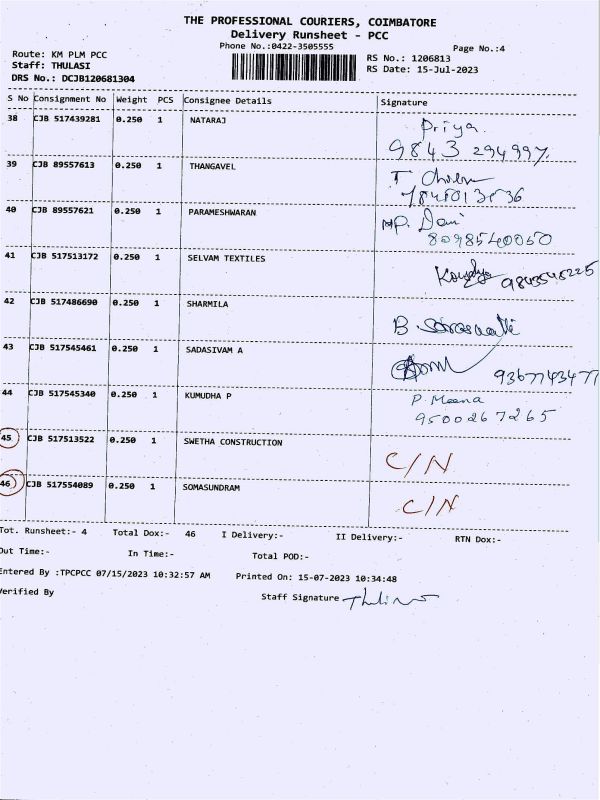 THE PROFESSIONAL COURIERS, COIMBATORE
Delivery Runsheet - PCC
Phone No.:0422-3505555
Page No.:4
Route: KM PLM PCC
Staff: THULASI
DRS No.: DCJB120681304
RS No.: 1206813
RS Date: 15-Jul-2023
S No Consignment No Weight PCS Consignee Details Signature
38 CJB 517439281 0.250 1 NATARAJ Priya
9843 294997
39 CJB 89557613 0.250 1 THANGAVEL T
40 CJB 89557621 0.250 1 PARAMESHWARAN MP. Dani
8098540050
41 CJB 517513172 0.250 1 SELVAM TEXTILES 9843548225
42 CJB 517486690 0.250 1 SHARMILA B. Saraswathi
43 CJB 517545461 0.250 1 SADASIVAM A
9367743477
44 CJB 517545340 0.250 1 KUMUDHA P P. Meena
9500267265
45 CJB 517513522 0.250 1 SWETHA CONSTRUCTION C/N
46 CJB 517554089 0.250 1 SOMASUNDRAM C/N
Tot. Runsheet:- 4 Total Dox:- 46 I Delivery:- II Delivery:- RTN Dox:-
Out Time:- In Time:- Total POD:-
Entered By :TPCPCC 07/15/2023 10:32:57 AM Printed On: 15-07-2023 10:34:48
Verified By Staff Signature